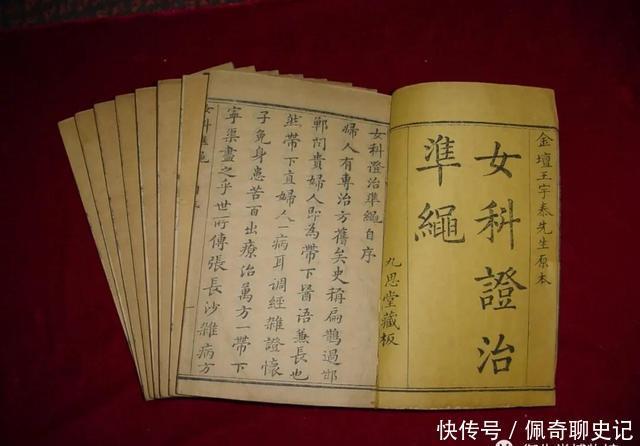 金壇王宇泰先生原本
女科證治
準繩
九思堂藏板
女科證治準繩自序
婦人有專治方舊矣史稱扁鵲過邯
鄲聞貴婦人即為帶下醫語兼長也
然帶下直婦人一病耳調經雜證懷
子免身患苦百出療治萬方一帶下
寧渠盡之乎世所傳張長沙雜病方
女科準繩
快传号/佩奇聊史记